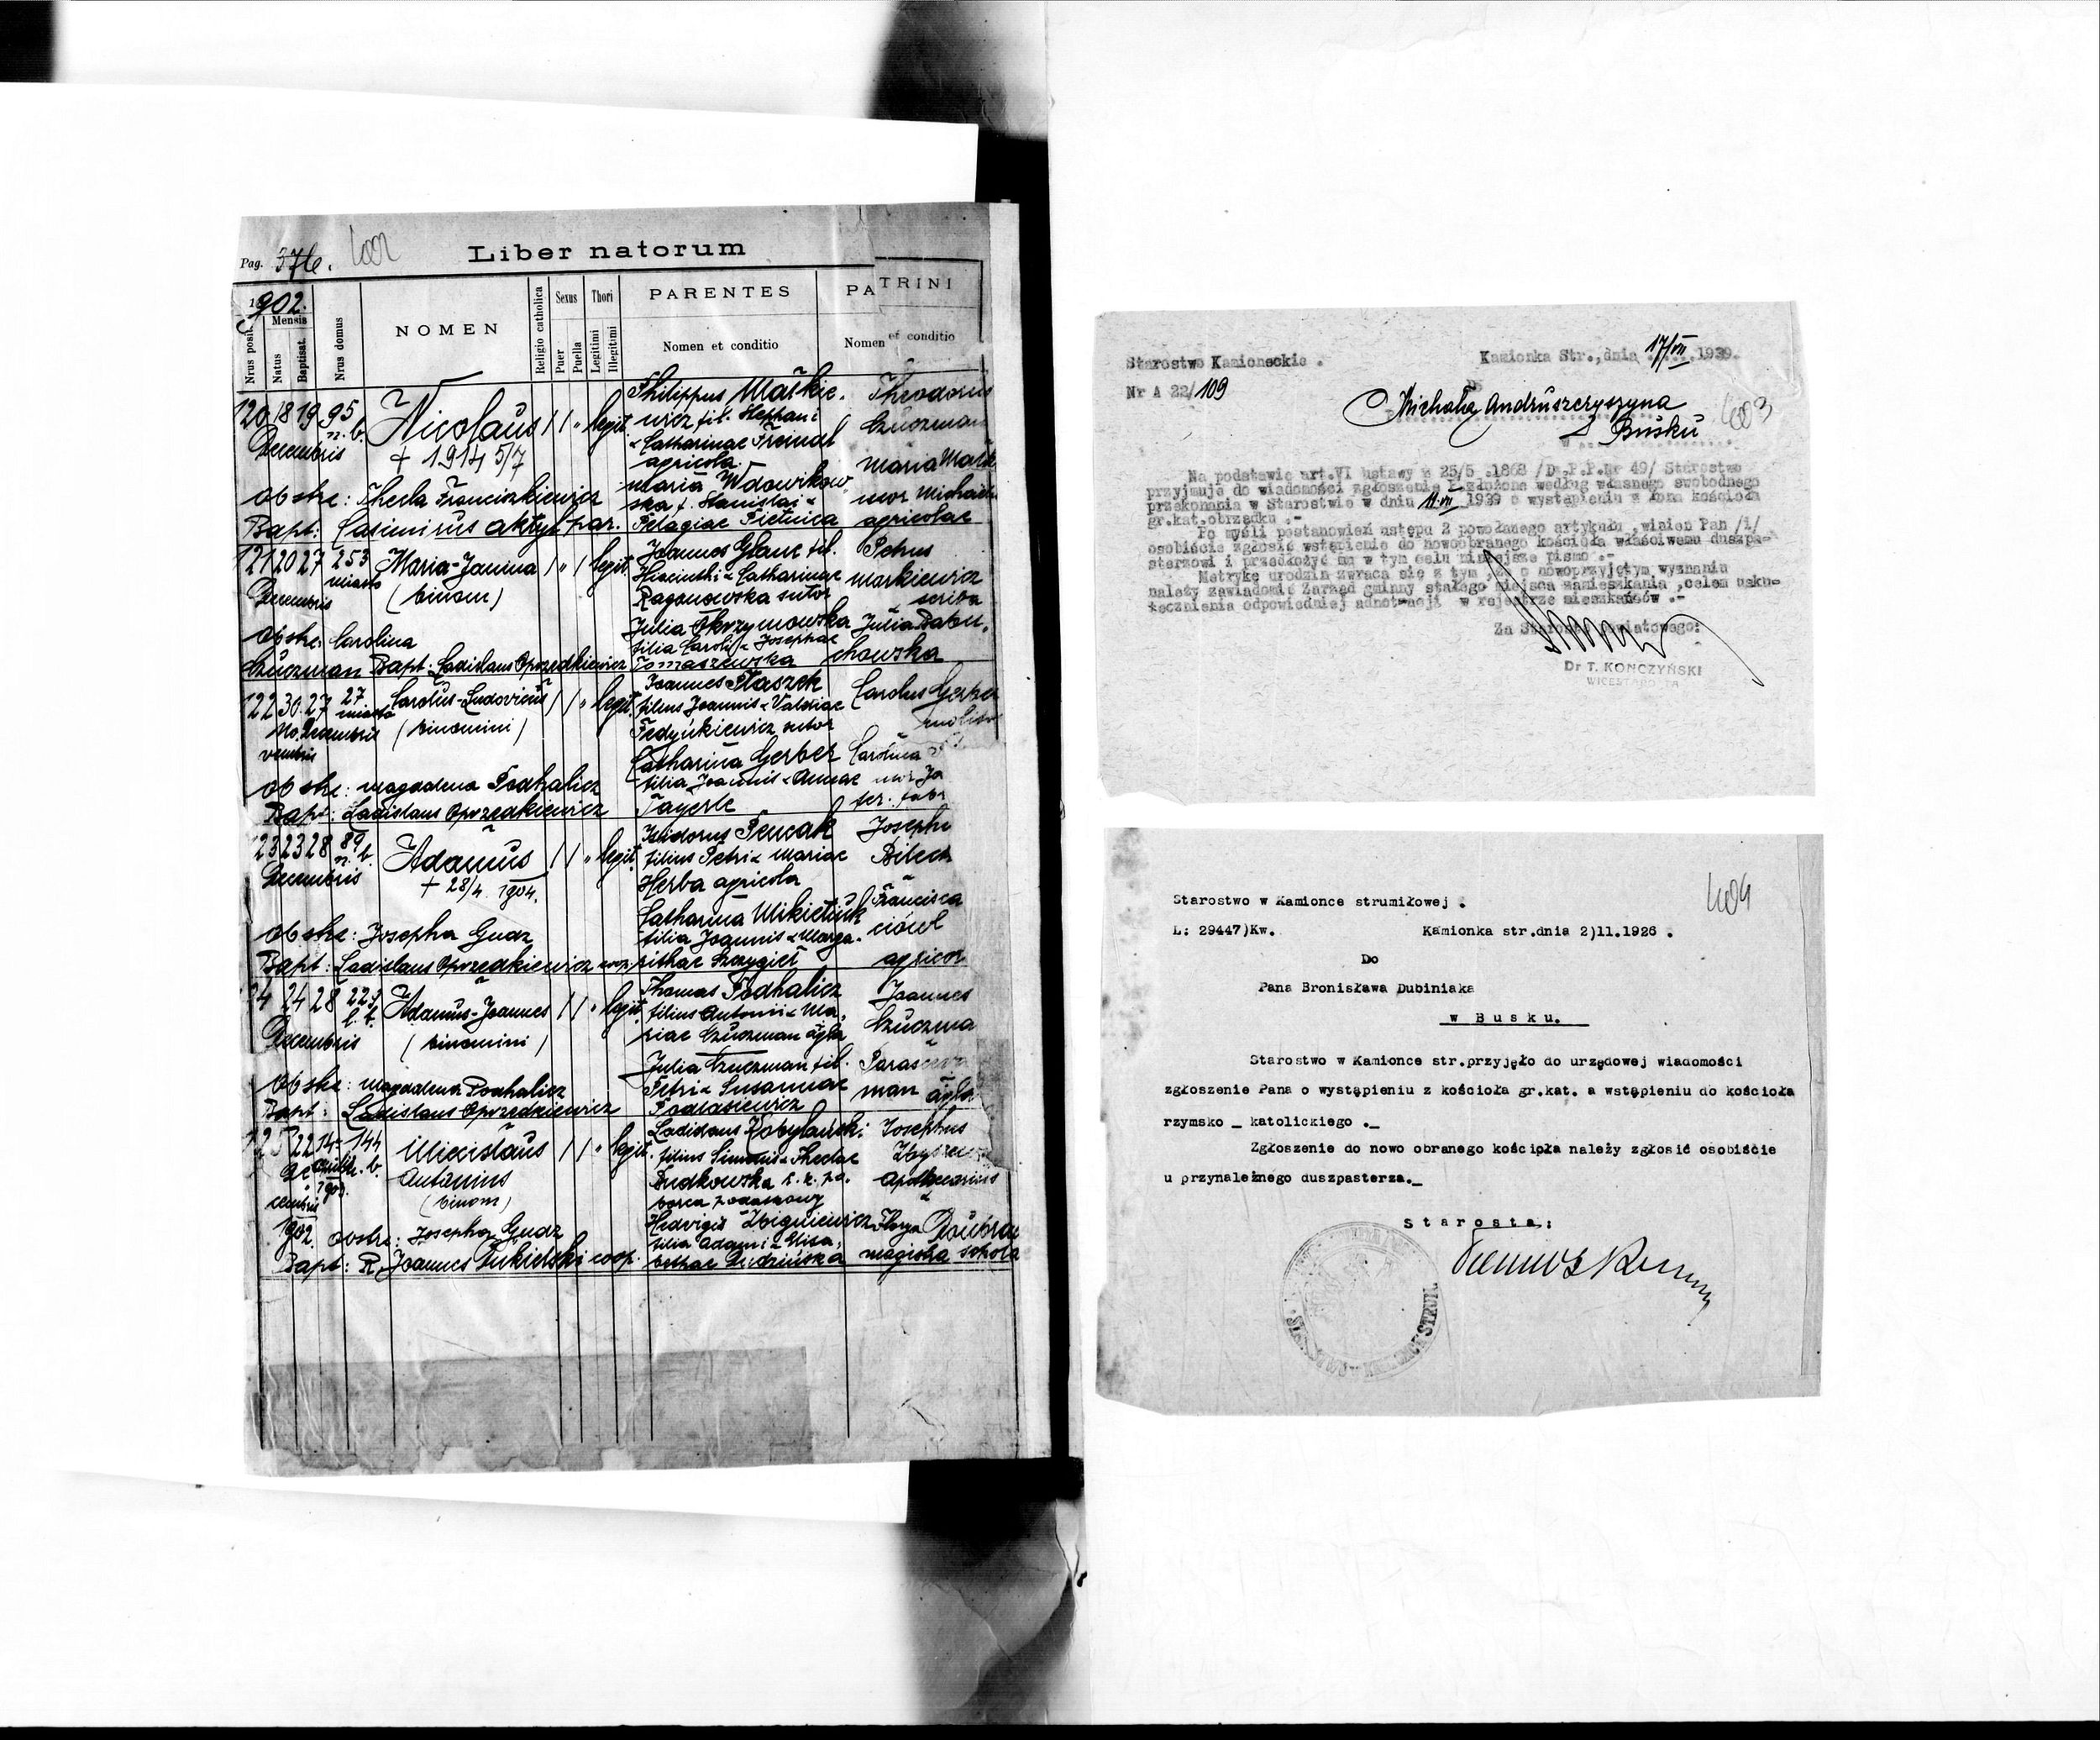 Pag. 376. 402 Liber natorum
1902.
Nrus posit.
Mensis
Natus
Baptisat.
Nrus domus
NOMEN
Religio catholica
Sexus
Puer
Puella
Thori
Legitimi
Illegitimi
PARENTES
Nomen et conditio
PATRINI
Nomen et conditio
120 18 19 95 Nicolaus legit.
Decembris n. b.
+ 1914 5/7
Philippus Maśkie-
wicz fil. Stephani
& Catharinae
agricola.
Maria Wdowikow
ska f. Stanislai &
Pelagiae Pietnica
Theodorus
Czuczman
Maria
uxor Michaelis
agricolae
Obstr: Thecla Franciszkiewicz
Bapt: Casimirus par.
121 20 27 253 Maria-Janina legit.
Decembris miasto (binom)
Joannes Glanc fil.
& Catharinae
Raganowska sutor
Julia Okrzymowska
filia Caroli & Josephae
Tomaszewska
Petrus
Markiewicz
scriba
Julia Babu-
chowska
Obstr: Carolina
Czuczman Bapt: Ladislaus Oprzedkiewicz
122 30 27 27 Carolus-Ludovicus legit.
No- Decembris miasto (binomini)
vembris
Joannes Ptaszek
filius Joannis &
Fedyńkiewicz sutor
Catharina Gerber
filia Joannis & Annae
Tayerle
Carolus Gerber
Carolina
Obstr: Magdalena Podhalicz
Bapt: Ladislaus Oprzedkiewicz
123 23 28 89 Adamus legit.
Decembris n. b.
+ 28/4 1904.
Isidorus Pencak
filius Petri & Mariae
Herba agricola
Catharina Mikietiuk
filia Joannis & Marga-
rithae Szczygieł
Josephus
Francisca
Obstr: Josepha Gudz
Bapt: Ladislaus Oprzedkiewicz coop.
24 28 Adamus-Joannes legit.
Decembris (binomini)
Thomas Podhalicz
filius Antonii & Ma-
riae Czuczman agla
Julia Czuczman fil.
Petri & Susannae
Podlasiewicz
Joannes
Czuczma
man agla
Obstr: Magdalena Podhalicz
Bapt: Ladislaus Oprzedkiewicz
125 22 14 144 Miecislaus legit.
De- Aprilis n. b. Antonius
cembris 1903. (binom)
1902.
Ladislaus Kobylański
filius Simonis & Theclae
Rudkowska c. k. po-
borca podatkowy
Hedvigis Zbigniewicz
filia Adami & Elisa-
bethae Ludzińska
Josephus
Apothecarius
&
magistra schola
Obstr: Josepha Gudz
Bapt: R. Joannes coop.
Starostwo Kamioneckie .
Kamionka Str.,dnia 17/VII 1939.
Nr A 22/109
403
Michała Andruszczyszyna
w Busku
Na podstawie art.VI ustawy z 25/5 .1868 /D.P.P.Nr 49/ Starostwo
przyjmuje do wiadomości zgłoszenie P.złożone według własnego swobodnego
przekonania w Starostwie w dniu 11.VII 1939 o wystąpieniu z łona kościoła
gr.kat.obrządku .-
Po myśli postanowień ustępu 2 powołanego artykułu ,winien Pan /i/
osobiście zgłosić wstąpienie do nowoobranego kościoła właściwemu duszpa-
sterzowi i przedłożyć mu w tym celu niniejsze pismo .-
Metrykę urodzin zwraca się z tym ,że o nowoprzyjętym wyznaniu
należy zawiadomić Zarząd gminny stałego miejsca zamieszkania ,celem usku-
tecznienia odpowiedniej adnotacji w rejestrze mieszkańców .-
Za Starostę Powiatowego:
Dr T. KONCZYŃSKI
WICESTAROSTA
404
Starostwo w Kamionce strumiłowej .
L: 29447)Kw. Kamionka str.dnia 2)11.1926 .
Do
Pana Bronisława Dubiniaka
w Busku.
Starostwo w Kamionce str.przyjęło do urzędowej wiadomości
zgłoszenie Pana o wystąpieniu z kościoła gr.kat. a wstąpieniu do kościoła
rzymsko _ katolickiego ._
Zgłoszenie do nowo obranego kościoła należy zgłosić osobiście
u przynależnego duszpasterza._
Starosta: